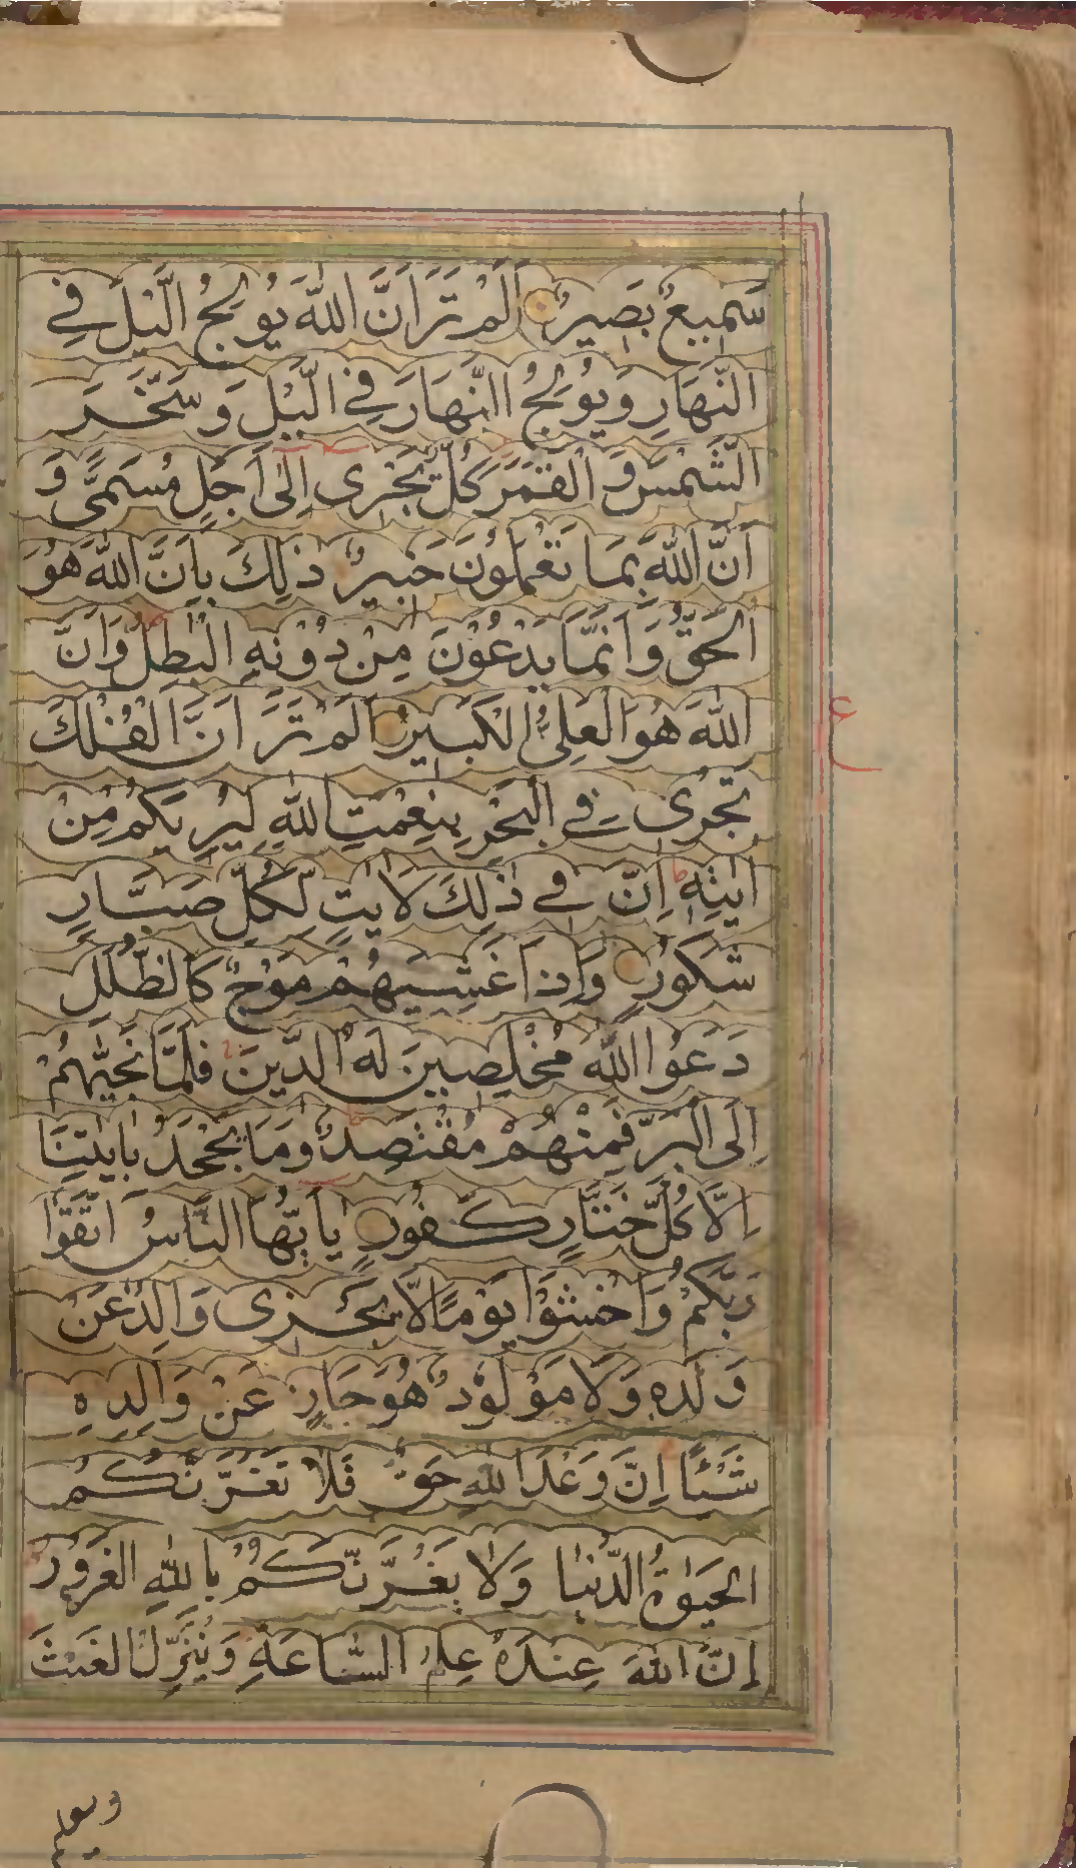 سَمِيعٌ بَصِيرٌ اَلَمْ تَرَ اَنَّ اللّٰهَ يُولِجُ الَّيْلَ فِي
النَّهَارِ وَيُولِجُ النَّهَارَ فِي الَّيْلِ وَسَخَّرَ
الشَّمْسَ وَالْقَمَرَ كُلٌّ يَجْرِى اِلٰى اَجَلٍ مُسَمًّى وَ
اَنَّ اللّٰهَ بِمَا تَعْمَلُونَ خَبِيرٌ ذٰلِكَ بِاَنَّ اللّٰهَ هُوَ
الْحَقُّ وَاَنَّمَا يَدْعُوْنَ مِنْ دُوْنِهِ الْبٰطِلُ وَاَنَّ
اللّٰهَ هُوَ الْعَلِىُّ الْكَبِيْرُ اَلَمْ تَرَ اَنَّ الْفُلْكَ
ع
تَجْرِى فِي الْبَحْرِ بِنِعْمَتِ اللّٰهِ لِيُرِيَكُمْ مِنْ
اٰيٰتِهٖ اِنَّ فِي ذٰلِكَ لَاٰيٰتٍ لِّكُلِّ صَبَّارٍ
شَكُورٍ وَاِذَا غَشِيَهُمْ مَوْجٌ كَالظُّلَلِ
دَعَوُا اللّٰهَ مُخْلِصِينَ لَهُ الدِّينَ فَلَمَّا نَجّٰيهُمْ
اِلَى الْبَرِّ فَمِنْهُمْ مُقْتَصِدٌ وَمَا يَجْحَدُ بِاٰيٰتِنَا
اِلَّا كُلُّ خَتَّارٍ كَفُورٍ يٰاَيُّهَا النَّاسُ اتَّقُوْا
رَبَّكُمْ وَاخْشَوْا يَوْمًا لَّا يَجْزِى وَالِدٌ عَنْ
وَلَدِهٖ وَلَا مَوْلُوْدٌ هُوَ جَازٍ عَنْ وَالِدِهٖ
شَيْـًٔا اِنَّ وَعْدَ اللّٰهِ حَقٌّ فَلَا تَغُرَّنَّكُمُ
الْحَيٰوةُ الدُّنْيَا وَلَا يَغُرَّنَّكُمْ بِاللّٰهِ الْغَرُورُ
اِنَّ اللّٰهَ عِنْدَهٗ عِلْمُ السَّاعَةِ وَيُنَزِّلُ الْغَيْثَ
ويعلم